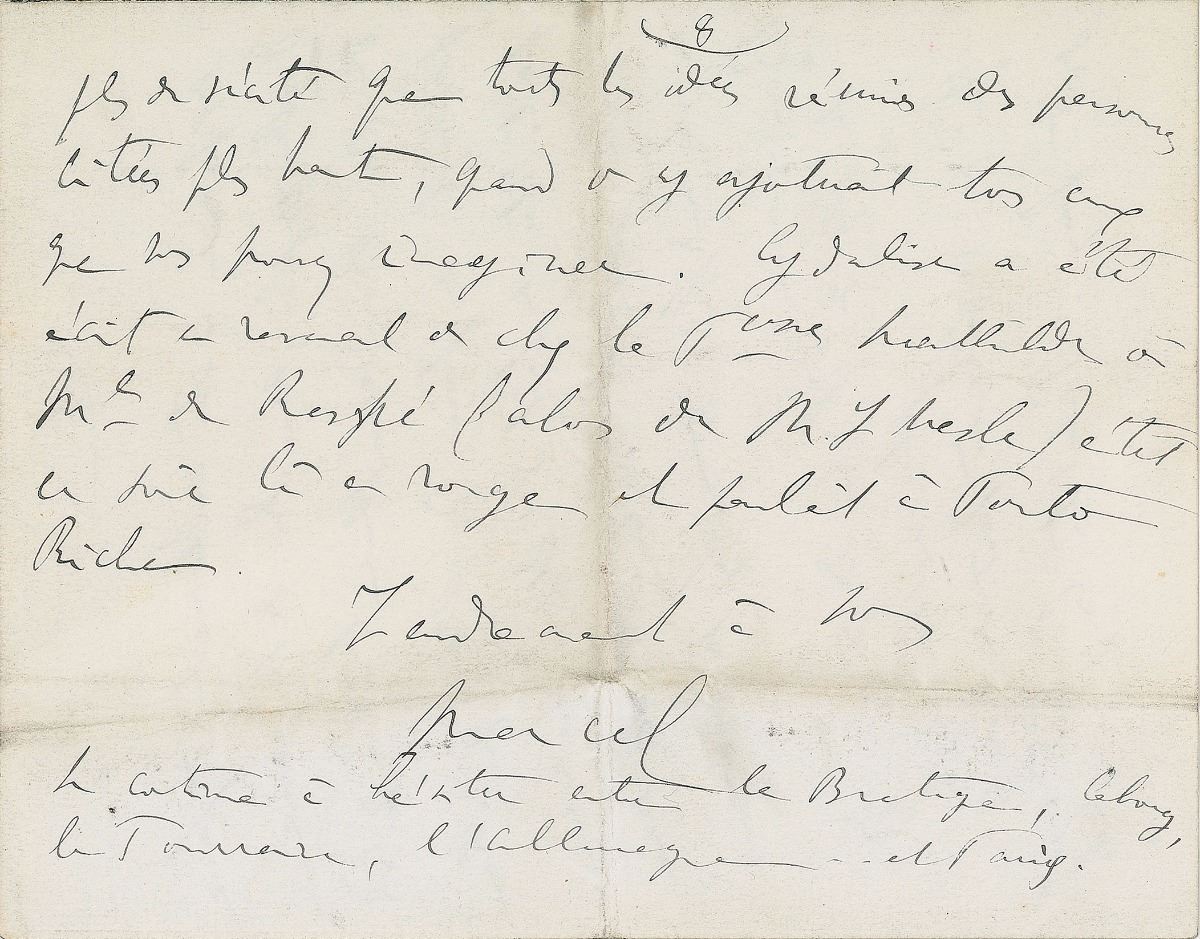 8
plus de vérité que toutes les idées réunies des personnes
citées plus haut, quand on y ajouterait tous ceux
que vous pouvez imaginer. Cydalise a été
écrit en revenant de chez la Psse Mathilde à
Mle de Reszké (alors de M. Y Nesle) était
ce soir là en rouge et parlait à Porto
Riche
Tendrement à vous
Marcel
Je continue à hésiter entre la Bretagne, Cabourg,
la Touraine, l'Allemagne... et Paris.